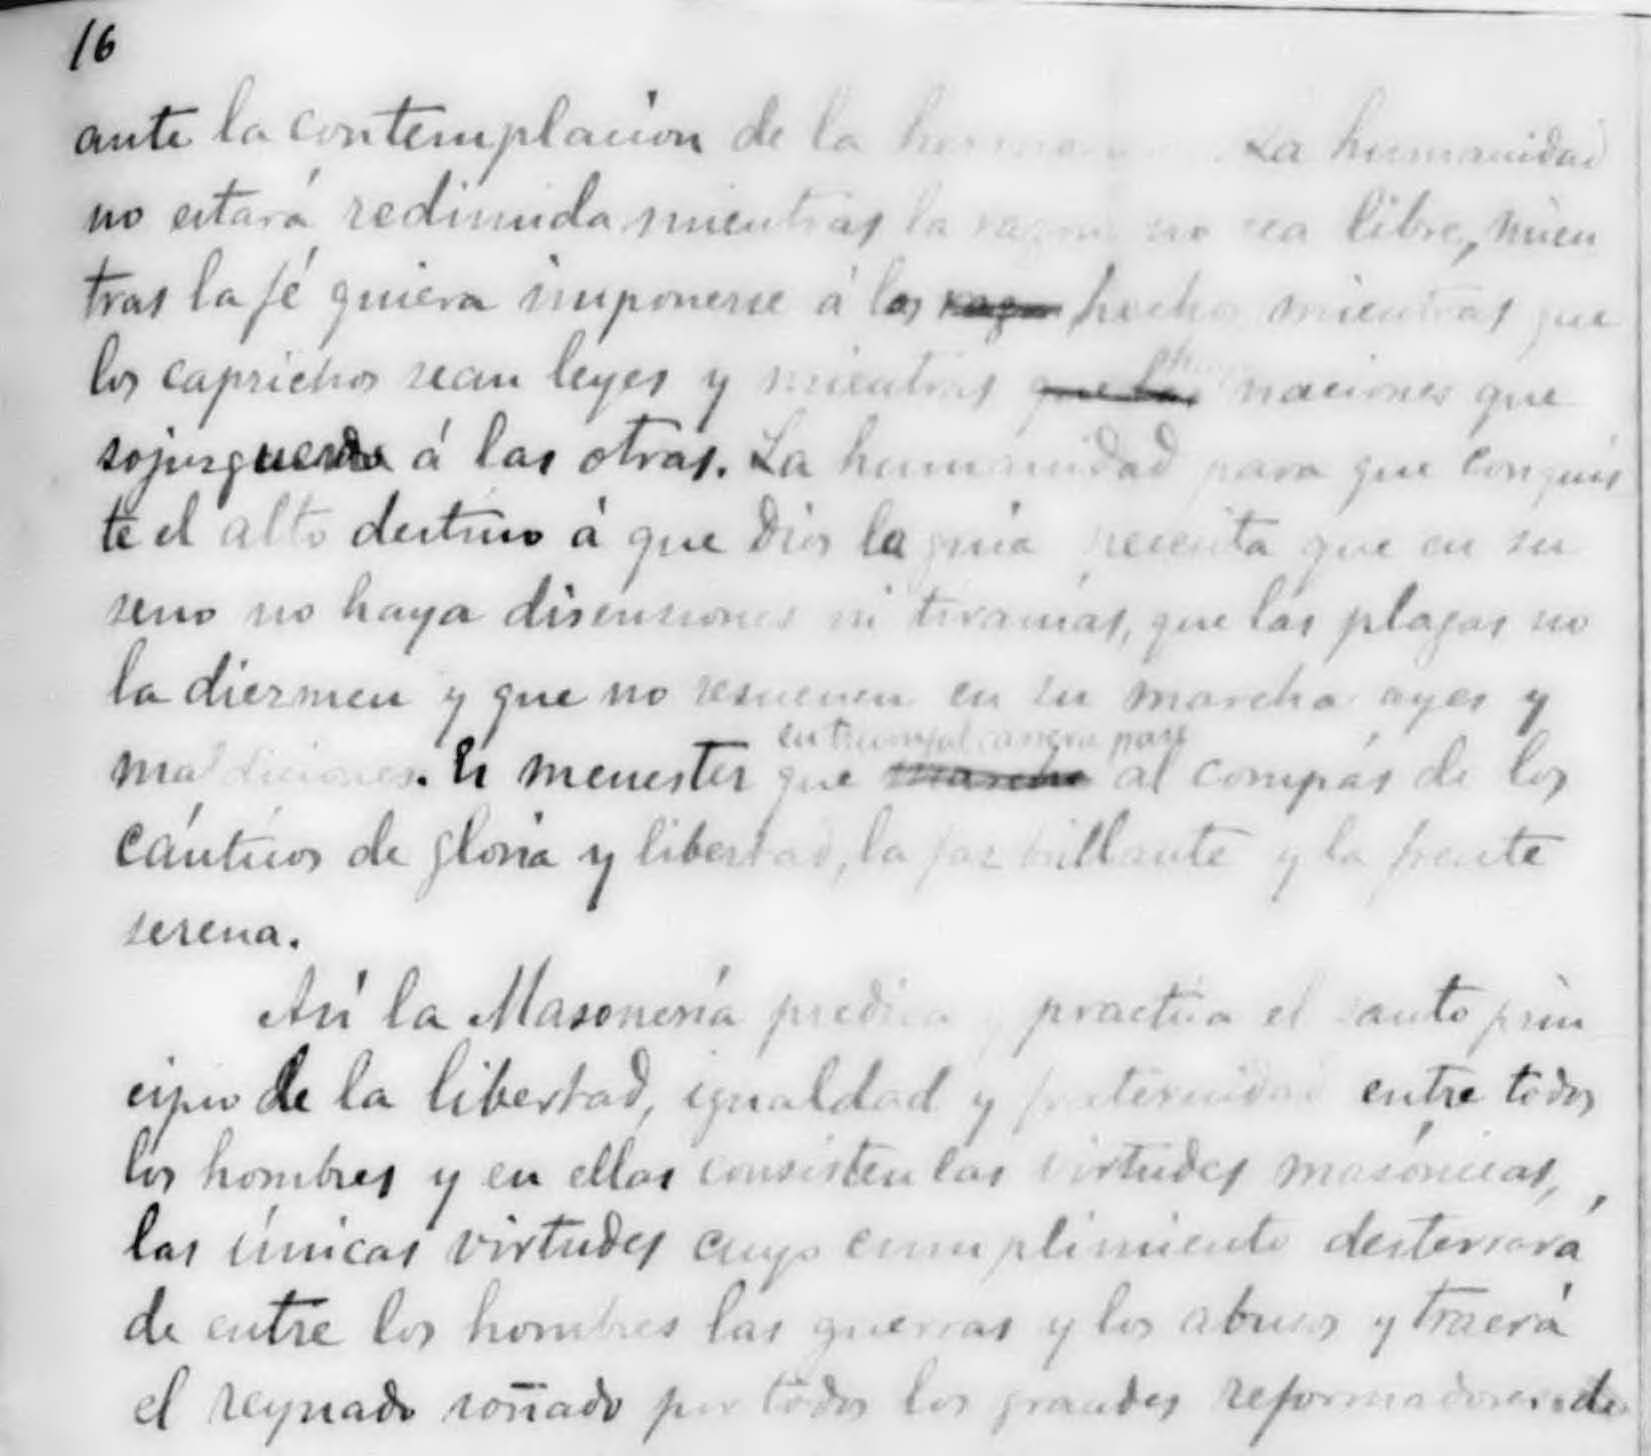 16
ante la contemplacion de la La humanidad
no estará redimida mientras la razon no sea libre, mien
tras la fé quiera imponerse á los hechos mientras que
los caprichos sean leyes y mientras naciones que
sojuzguen á las otras. La humanidad para que conquis
te el alto destino á que Dios la guia necesita que en su
seno no haya disensiones ni tiranías, que las plagas no
la diezmen y que no resuenen en su marcha ayes y
en triunfal carrera pase
maldiciones. Es menester que marche al compás de los
cánticos de gloria y libertad, la faz brillante y la frente
serena.
Así la Masonería predica y practica el santo prin
cipio de la libertad, igualdad y fraternidad entre todos
los hombres y en ellas consisten las virtudes masónicas,
las únicas virtudes cuyo cumplimiento desterrará
de entre los hombres las guerras y los abusos y traerá
el reynado soñado por todos los grandes reformadores de